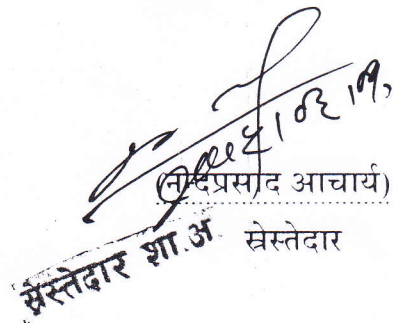 (नन्दप्रसाद आचार्य)
स्रेस्तेदार
स्रेस्तेदार शा.अ.